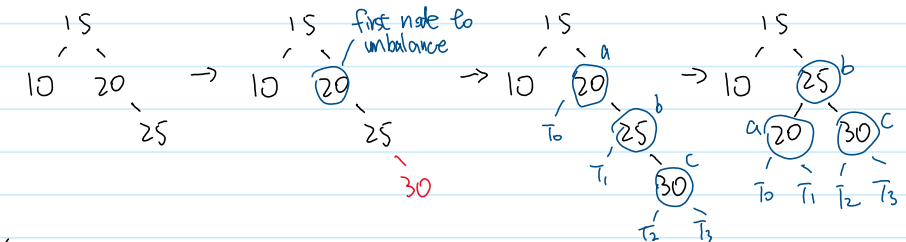 15
10 20
25
→
first node to
unbalance
15
10 20
25
30
→
15
a
10 20
T0 b
25
T1 c
30
T2 T3
→
15
b
10 25
a c
20 30
T0 T1 T2 T3